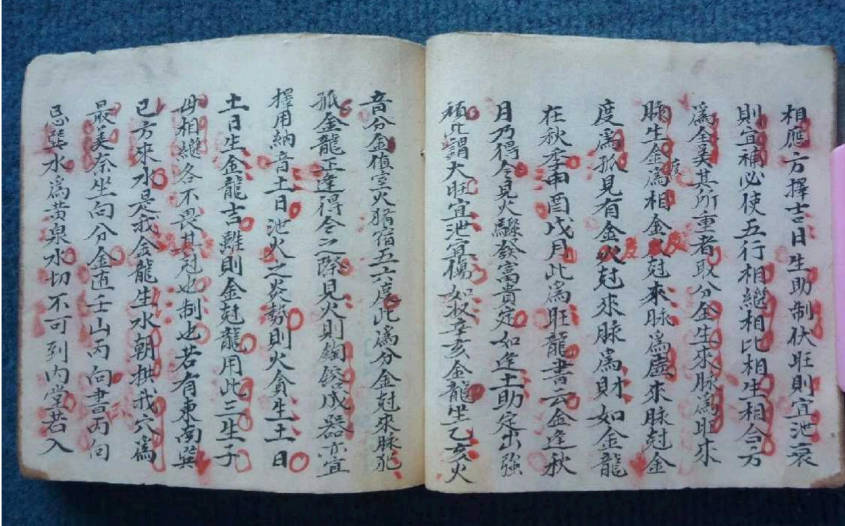 相應方擇吉日生助制伏旺則宜泄衰
則宜補必使五行相繼相比相生相合方
為全美其所重者取分金生來脉為旺來
脉生金為相金尅來脉為虛來脉尅金
度為孤見有金尅來脉為財如金龍
在秋季申酉戌月此為旺龍書云金逢秋
月乃得令見火驟發富貴定如逢土助定出強
頑此謂大旺宜泄宜傷如扦辛亥金龍坐乙亥火
音分金值室火猪宿五六度此為分金尅來脉犯
孤金龍正逢得令之際見火則鍋鎔成器亦宜
擇用納音土日泄火之炎勢則火貪生土日
土日生金龍吉雖則金尅龍用此三生子
母相繼各不畏其尅也制也若有東南巽
巳方來水是我金龍生水朝拱我穴為
最美奈坐向分金連壬山丙向書丙向
忌巽水為黄泉水切不可到内堂若入